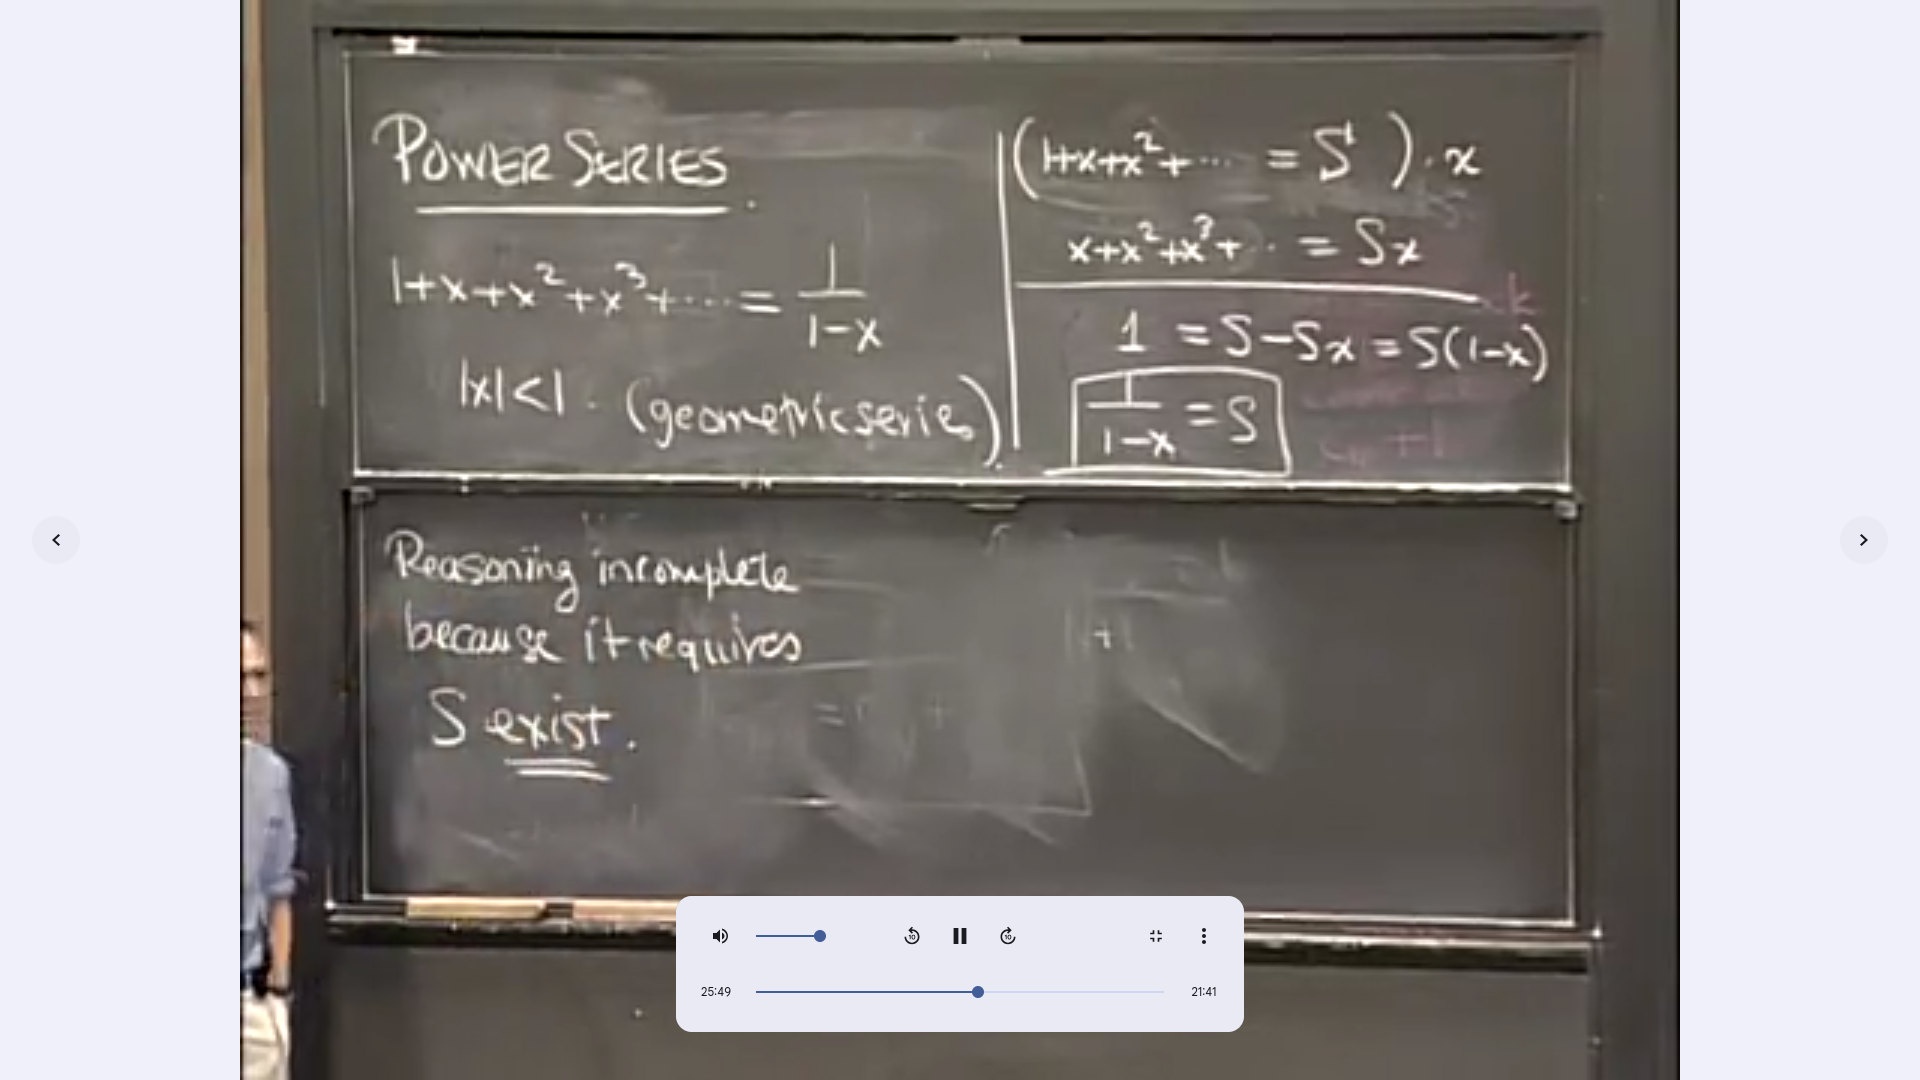 POWER SERIES.
1+x+x²+x³+... = 1/(1-x)
|x|<1. (geometric series).
(1+x+x²+... = S).x
x+x²+x³+... = Sx
1 = S-Sx = S(1-x)
1/(1-x) = S
Reasoning incomplete
because it requires
S exist.
10
10
25:49
21:41